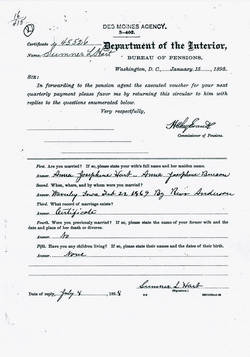 DES MOINES AGENCY.
3-402.
Certificate 45526
Name, Sumner L Hart
Department of the Interior,
BUREAU OF PENSIONS,
Washington, D. C., January 15, 1898.
SIR:
In forwarding to the pension agent the executed voucher for your next
quarterly payment please favor me by returning this circular to him with
replies to the questions enumerated below.
Very respectfully,
Commissioner of Pensions.
First. Are you married? If so, please state your wife's full name and her maiden name.
Answer. Anna Josephine Hart Anna Josephine
Second. When, where, and by whom were you married?
Answer. Iowa Feb 22 1869 By Anderson
Third. What record of marriage exists?
Answer. Certificate
Fourth. Were you previously married? If so, please state the name of your former wife and the
date and place of her death or divorce.
Answer. No
Fifth. Have you any children living? If so, please state their names and the dates of their birth.
Answer. None
Date of reply, July 4, 1898
Sumner L Hart
(Signature.)